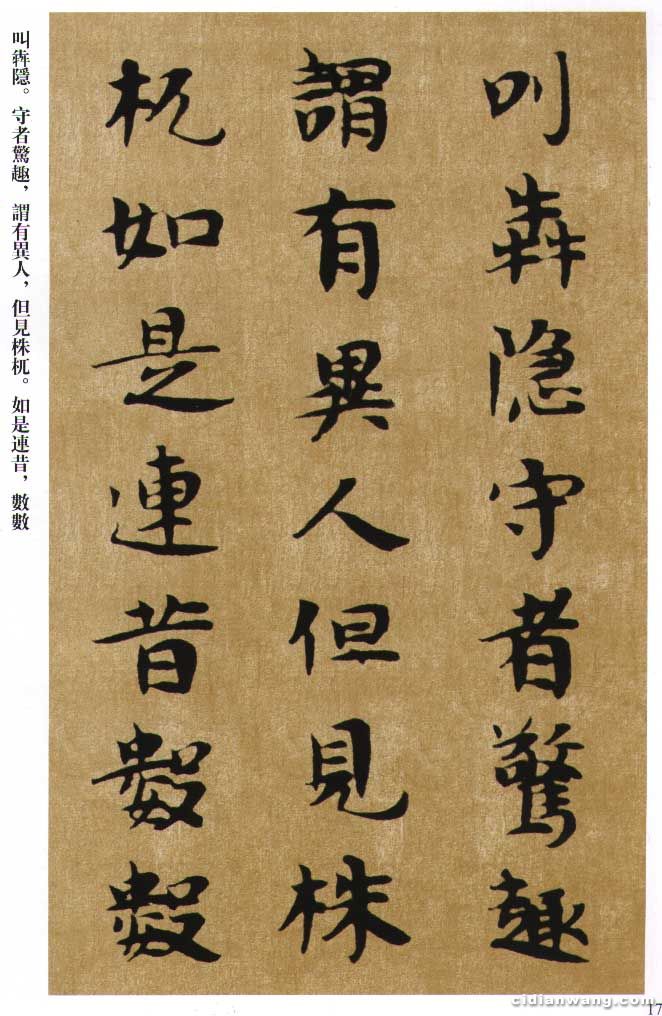 叫犇隱守者驚趣
謂有異人但見株
杌如是連昔數數
叫犇隱。守者驚趣，謂有異人，但見株杌。如是連昔，數數
cidianwang.com
17